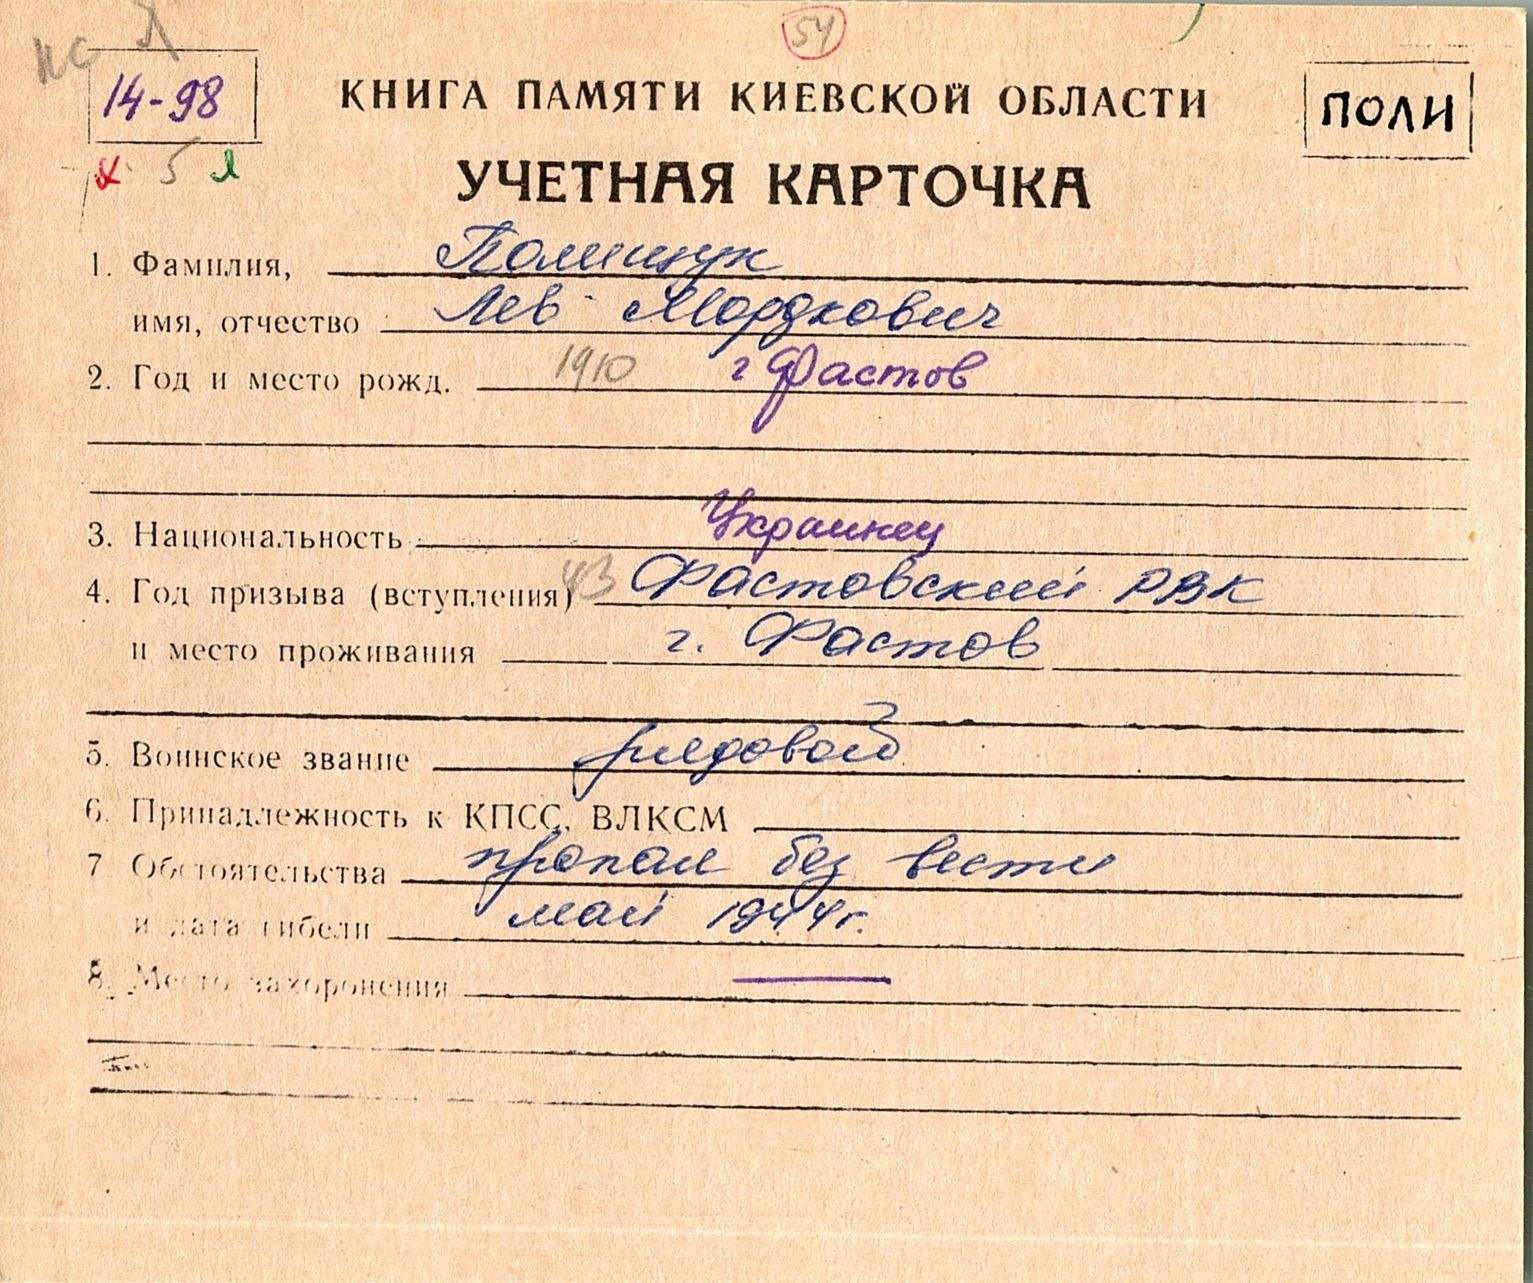 54
14-98
КНИГА ПАМЯТИ КИЕВСКОЙ ОБЛАСТИ
ПОЛИ
5
УЧЕТНАЯ КАРТОЧКА
1. Фамилия, Полищук
имя, отчество Лев Мордкович
2. Год и место рожд. 1910 г Фастов
3. Национальность Украинец
4. Год призыва (вступления) 43 Фастовский РВК
и место проживания г. Фастов
5. Воинское звание рядовой
6. Принадлежность к КПСС, ВЛКСМ
7 Обстоятельства пропал без вести
и дата гибели май 1944 г.
8. Место захоронения —